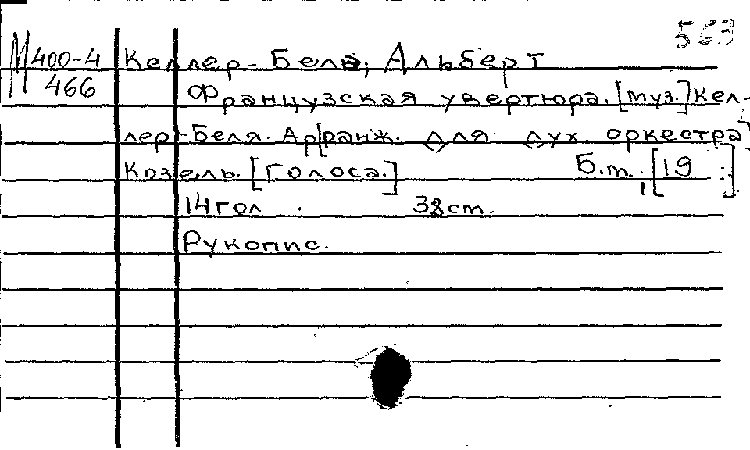 563
М 400-4 Келлер-Бела, Альберт
466 Французская увертюра. [Муз.] Кел-
лер-Беля. Ар[ранж. для дух оркестра]
Козель. [Голоса.] Б.м., [19 ]
14 гол. 38 ст.
Рукопис.